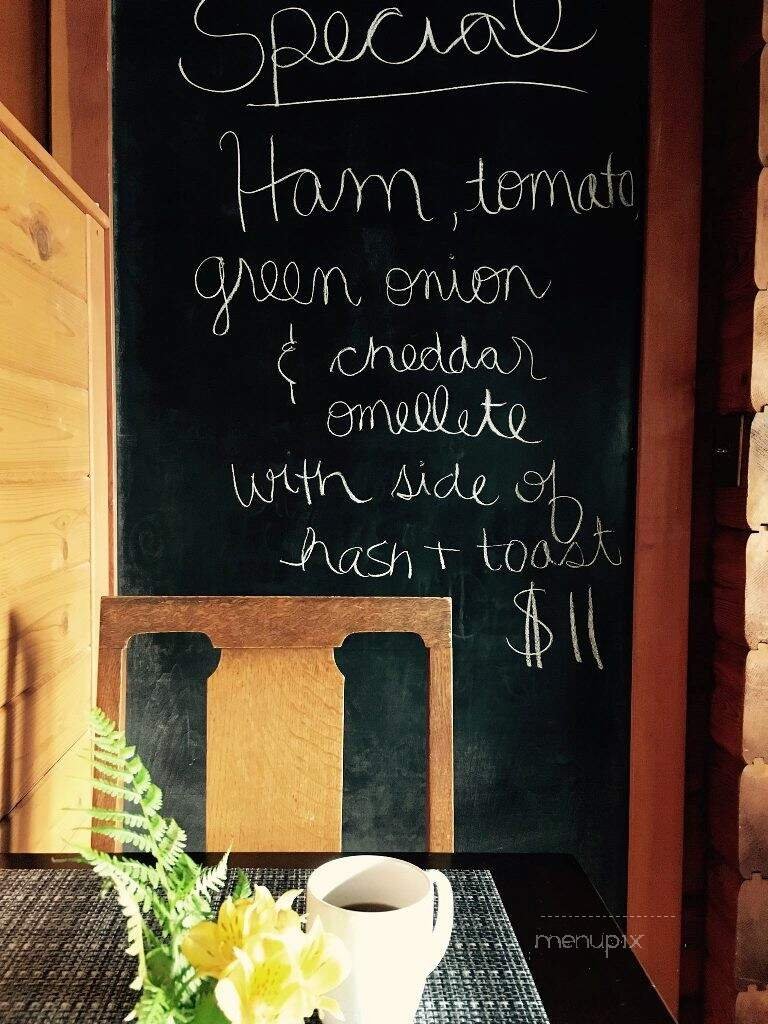 Special
Ham, tomato,
green onion
& cheddar
omellete
with side of
hash + toast
$11
menupix